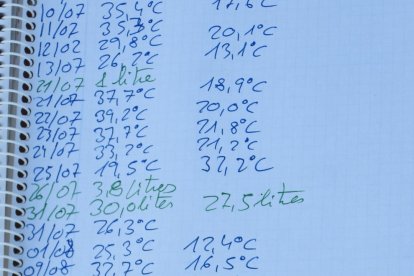 10/07 35,4°C 17,6°C
11/07 35,3°C
12/07 29,8°C 20,1°C
13/07 26,2°C 13,1°C
21/07 8 litre
21/07 37,7°C 18,9°C
22/07 39,2°C 20,0°C
23/07 37,7°C 21,8°C
24/07 33,2°C 21,2°C
25/07 19,5°C 32,2°C
26/07 3,8 litres
31/07 30,0 lites 22,5 litres
31/07 26,3°C
01/08 25,3°C 12,4°C
09/08 32,7°C 16,5°C